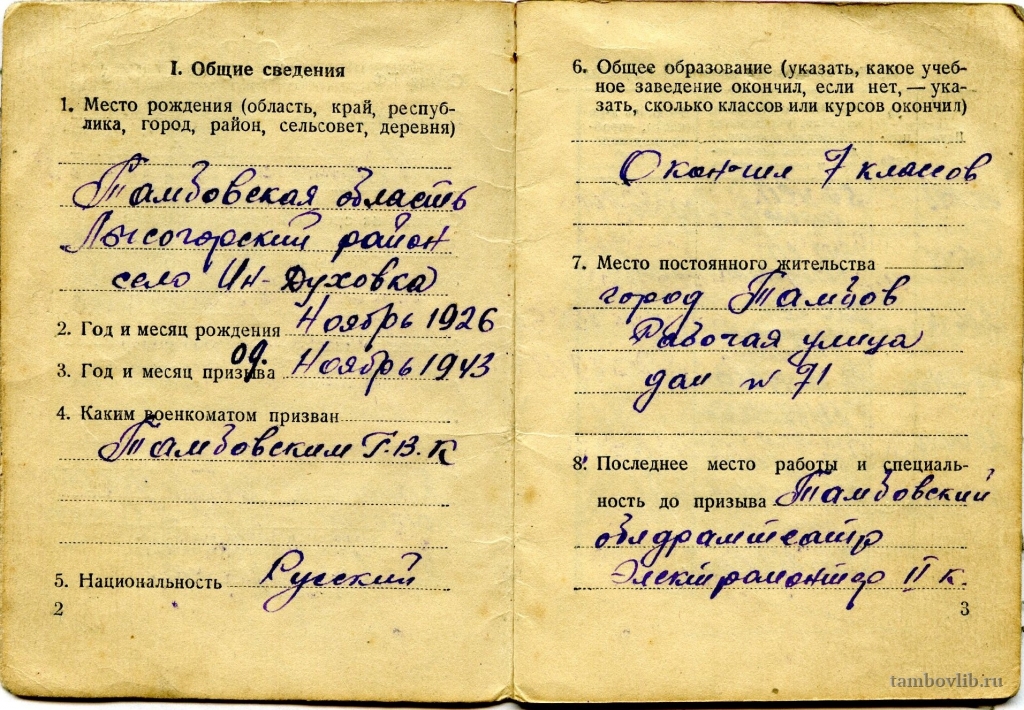 I. Общие сведения
1. Место рождения (область, край, респуб-
лика, город, район, сельсовет, деревня)
Тамбовская область
Лысогорский район
село Ин-Духовка
2. Год и месяц рождения Ноябрь 1926
09.
3. Год и месяц призыва Ноябрь 1943
4. Каким военкоматом призван
Тамбовским Г.В.К
5. Национальность Русский
2
6. Общее образование (указать, какое учеб-
ное заведение окончил, если нет, — ука-
зать, сколько классов или курсов окончил)
Окончил 7 классов
7. Место постоянного жительства
город Тамбов
Рабочая улица
дом № 71
8. Последнее место работы и специаль-
ность до призыва Тамбовский
облдрамтеатр
Электромонтер II к.
3
tambovlib.ru